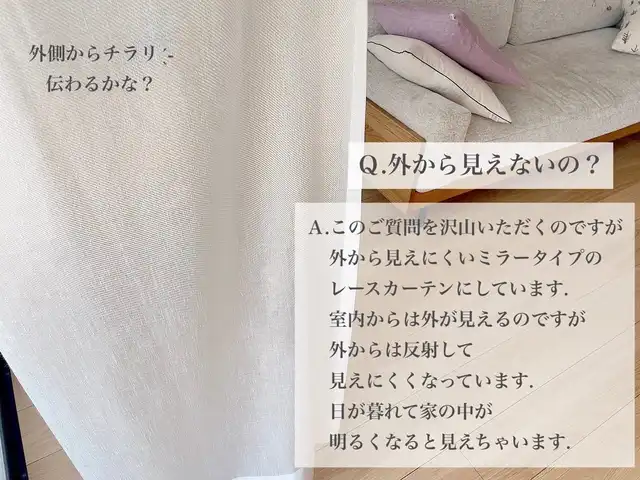 外側からチラリ
伝わるかな？
Q.外から見えないの？
A.このご質問を沢山いただくのですが
外から見えにくいミラータイプの
レースカーテンにしています.
室内からは外が見えるのですが
外からは反射して
見えにくくなっています.
日が暮れて家の中が
明るくなると見えちゃいます.